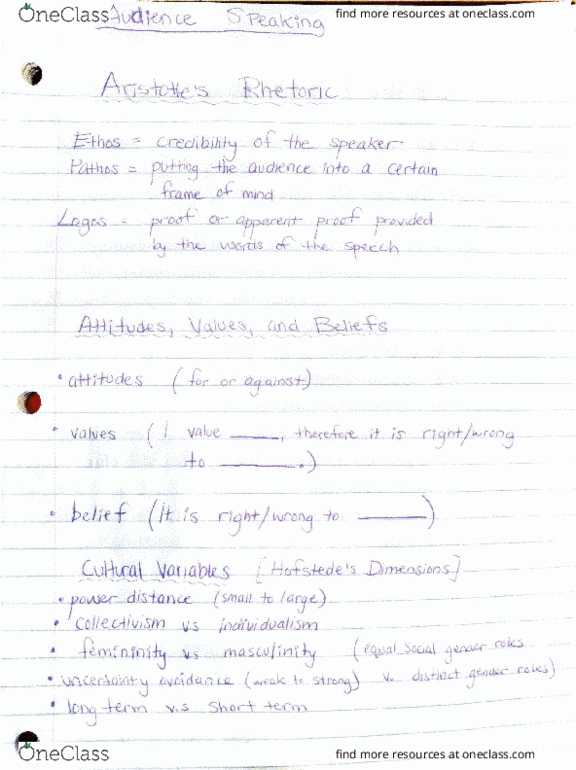 OneClass find more resources at oneclass.com
Audience Speaking
Aristotle's Rhetoric
Ethos = credibility of the speaker
Pathos = putting the audience into a certain
frame of mind
Logos - proof or apparent proof provided
by the words of the speech
Attitudes, Values, and Beliefs
• attitudes (for or against)
• values (I value _____, therefore it is right/wrong
to _____.)
• belief (it is right/wrong to _____)
Cultural Variables [Hofstede's Dimensions]
• power distance (small to large)
• collectivism vs individualism
• femininity vs masculinity (equal social gender roles
• uncertainty avoidance (weak to strong) v. distinct gender roles)
• long term v.s short term
OneClass find more resources at oneclass.com